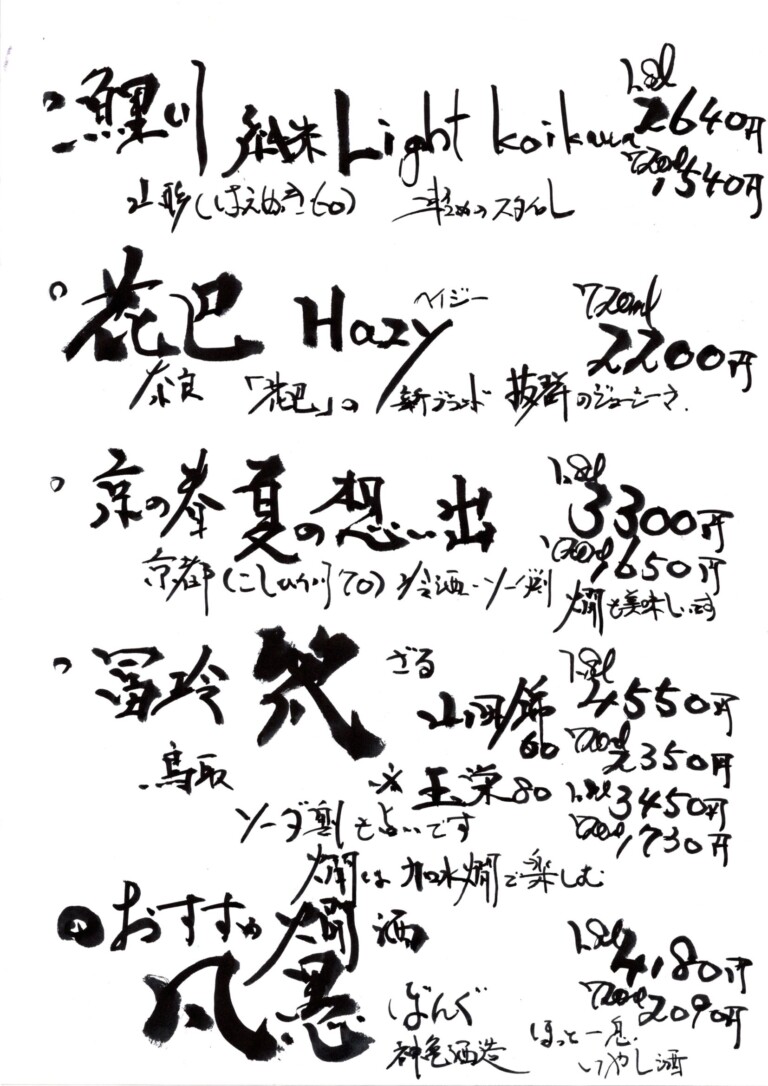 鯉川 純米 Light Koikawa 1.8l 2640円
720ml 1540円
山形(はえぬき60) 軽めのスタイル
花巴 Hazy ヘイジー 720ml 2200円
奈良 「花巴」の新ブランド 抜群のジューシーさ.
京の春 夏の想い出 1.8l 3300円
720ml 1650円
京都(こしひかり70) 冷酒・ソーダ割
燗も美味しいです
冨玲 ざる 山田錦60 1.8l 4550円
720ml 2350円
鳥取 ※玉栄80 1.8l 3450円
720ml 1730円
ソーダ割も良いです
燗は加水燗で楽しむ
おすすめ燗酒
ぼんぐ 1.8l 4180円
720ml 2090円
酒造 ほっと一息.
いやし酒